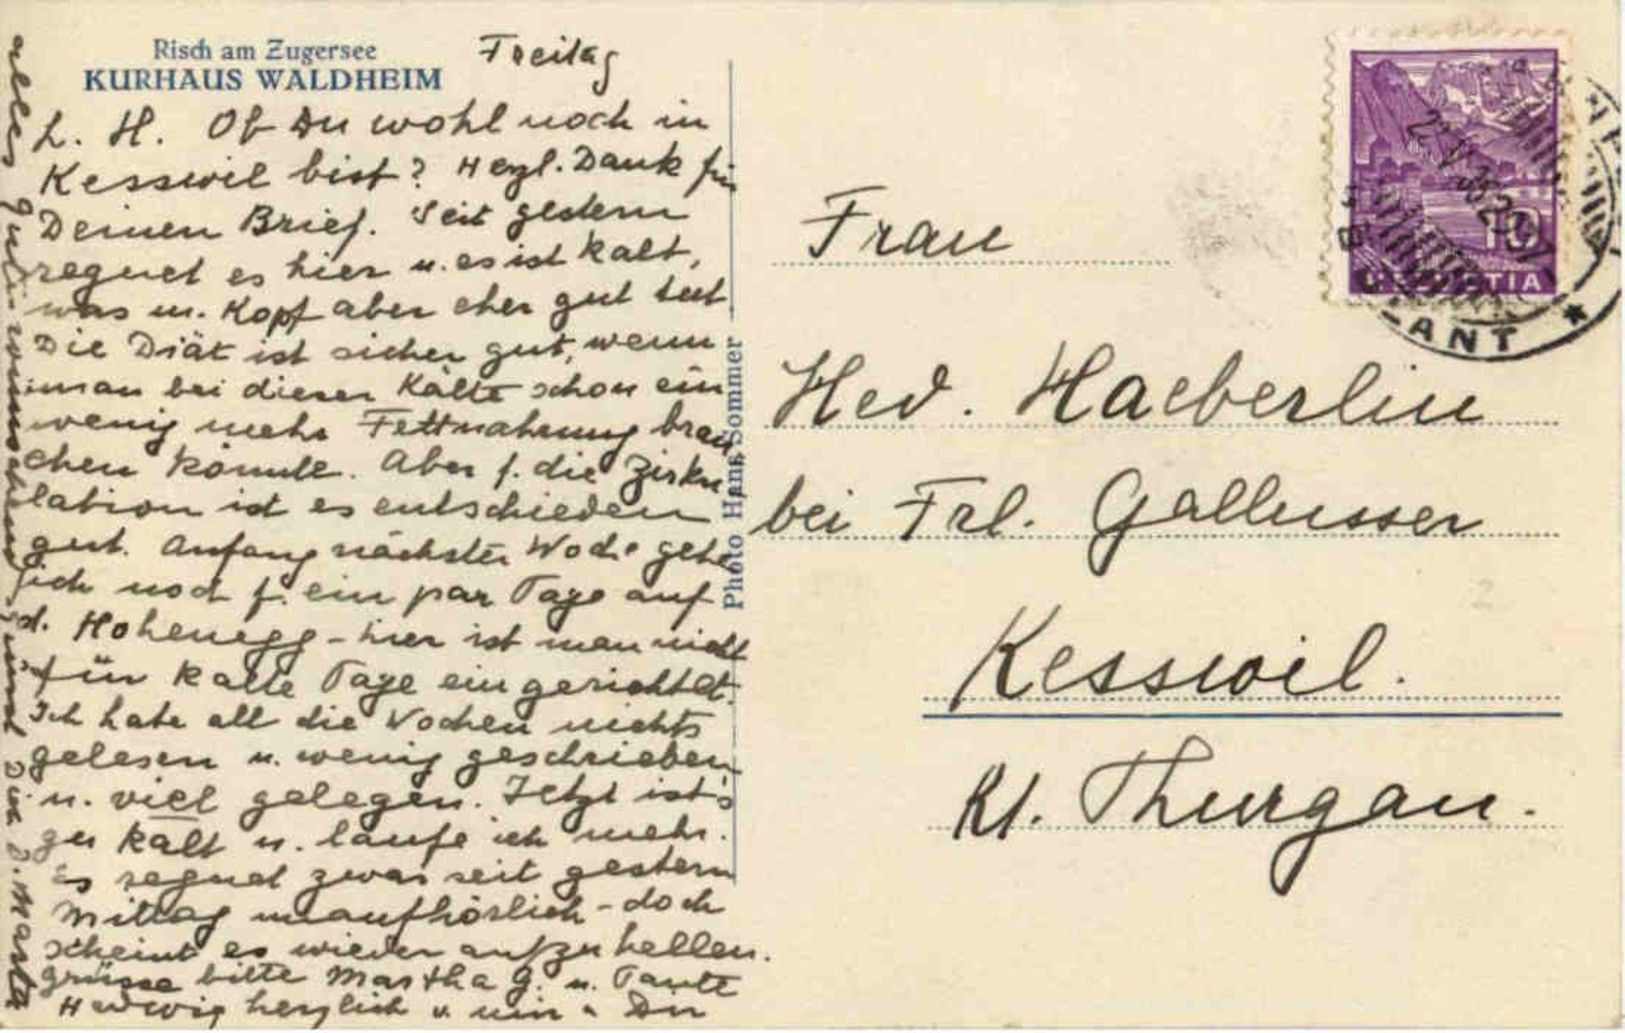 Risch am Zugersee
KURHAUS WALDHEIM
Freitag
L. H. Ob Du wohl noch in
Kesswil bist? Herzl. Dank für
Deinen Brief. Seit gestern
regnet es hier u. es ist kalt,
was m. Kopf aber eher gut tut
Die Diät ist sicher gut, wenn
man bei dieser Kälte schon ein
wenig mehr Fettnahrung brau
chen könnte. Aber f. die Zirku
lation ist es entschieden
gut. Anfang nächster Woche gehe
ich noch f. ein par Tage auf
d. Hohenegg - hier ist man nicht
für kalte Tage eingerichtet.
Ich habe all die Wochen nichts
gelesen u. wenig geschrieben
u. viel gelegen. Jetzt ist's
zu kalt u. laufe ich mehr.
Es regnet zwar seit gestern
Mittag unaufhörlich - doch
scheint es wieder aufzuhellen.
Grüsse bitte Martha G. u. Tante
Hedwig herzlich u. nim a Du
alles gute
Dir D. Marta
Photo Hans Sommer
Frau
Hed. Haeberlin
bei Frl. Gallusser
Kesswil.
Kt. Thurgau.
10
HELVETIA
ANT
2